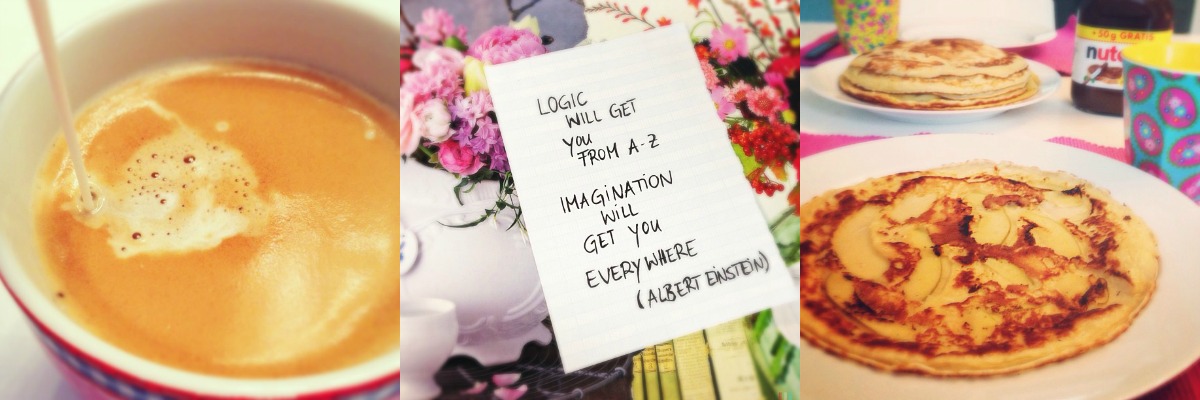 LOGIC
WILL GET
YOU
FROM A-Z
IMAGINATION
WILL
GET YOU
EVERYWHERE
(ALBERT EINSTEIN)
+50g GRATIS
nute